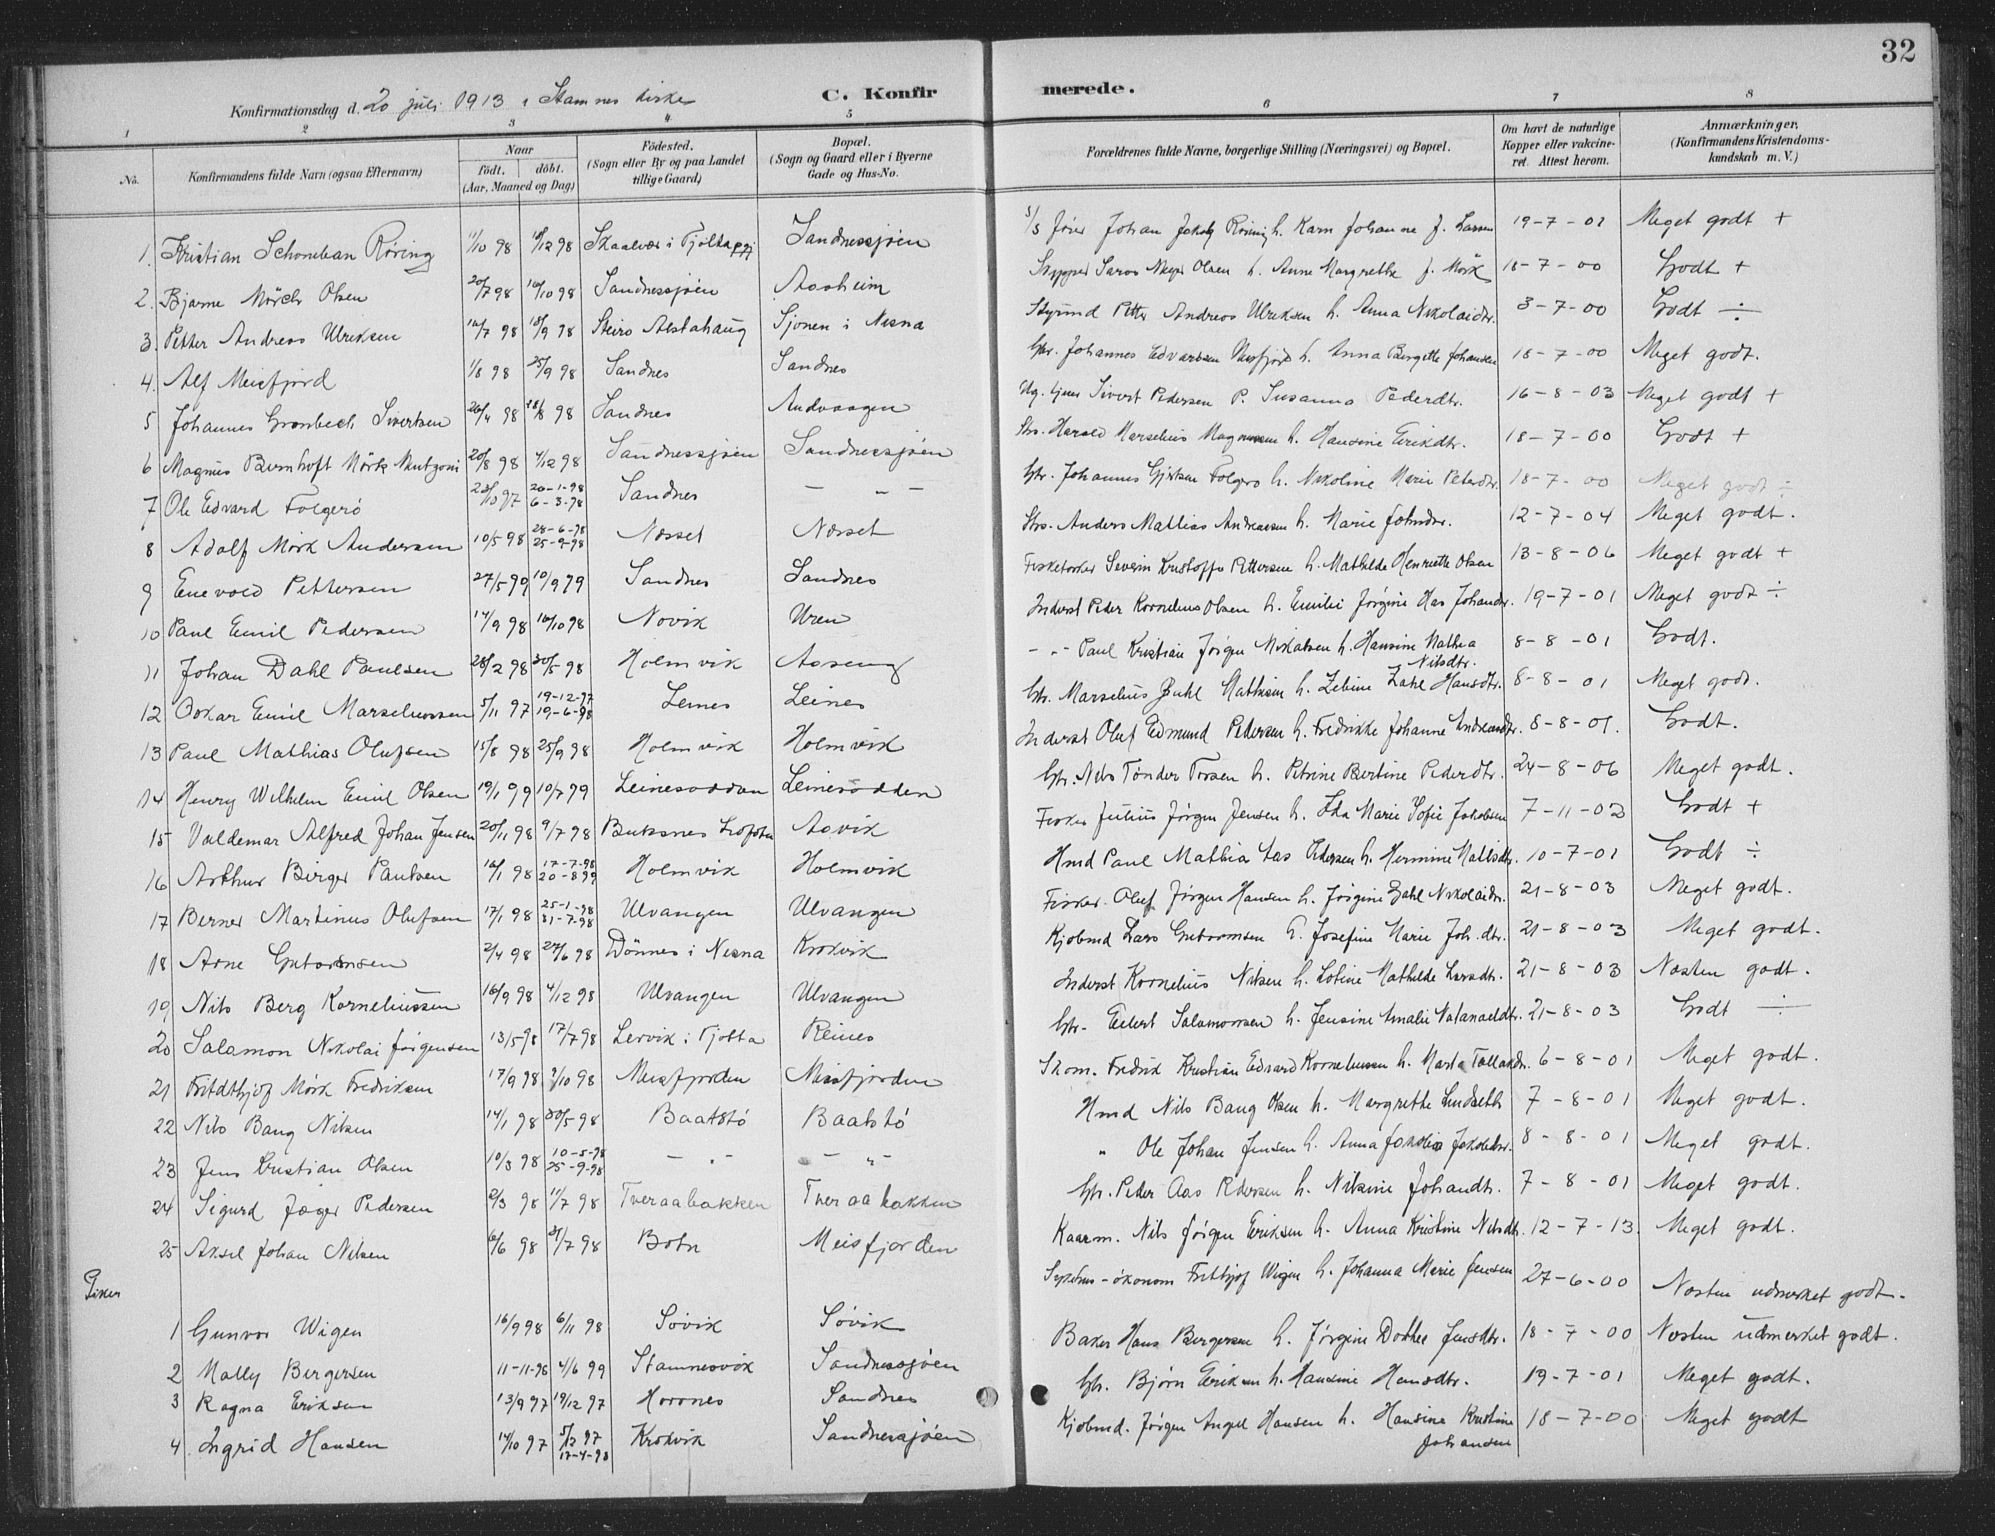 32
Konfirmationsdag d. 20 juli 1913 i Stamnes kirke
C. Konfirmerede.
1 2 3 4 5 6 7 8
No.
Konfirmandens fulde Navn (ogsaa Efternavn)
Naar
födt. döbt.
(Aar, Maaned og Dag)
Födested.
(Sogn eller By og paa Landet
tillige Gaard)
Bopæl.
(Sogn og Gaard eller i Byerne
Gade og Hus-No.
Forældrenes fulde Navne, borgerlige Stilling (Næringsvei) og Bopæl.
Om havt de naturlige
Kopper eller vakcine-
ret. Attest herom.
Anmærkninger.
(Konfirmandens Kristendoms-
kundskab m. V.)
1. Kristian Schoneban Røring 11/10 98 18/12 98 Skaalvær i Tjøtta Sandnessjøen Johan Jakob Røring h. Karn Johanne f. Larsen 19-7-01 Meget godt +
2. Bjarne Mörch Olsen 20/7 98 16/10 98 Sandnessjøen Aasheim Skypper Meyer Olsen h. Anne Margrethe f. Mörk 18-7-00 Godt +
3. Petter Andreas Ulriksen 16/7 98 18/9 98 Steiro Alstahaug Sjonen i Nesna Styrmd Petter Andreas Ulriksen h. Anna Nikolaidtr. 3-7-00 Godt ÷
4. Alf Meisfjord 1/8 98 25/9 98 Sandnes Sandnes Gbr. Johannes Edvartsen Meisfjord h. Anna Bergitte Johansen 18-7-00 Meget godt.
5 Johannes Grønbech Sivertsen 26/4 98 28/8 98 Sandnes Andvaagen Ug. tjener Sivert Pedersen P. Susanna Pedersdtr. 16-8-03 Meget godt +
6 Magnus Bernhoft Mörk 20/8 98 4/12 98 Sandnessjøen Sandnessjøen Strs. Harald Marselius Magnussen h. Hansine Erikdtr. 18-7-00 Godt +
7 Ole Edvard Folgerö 23/10 97 20-1-98 6-3-98 Sandnes — „ — Gbr. Johannes Folgerö h. Nikoline Marie Petersdtr. 18-7-00 Meget godt ÷
8 Adolf Mörk Andersen 10/5 98 28-6-98 25-9-98 Næsset Næsset Strs. Anders Mathias Andreassen h. Marie Johndtr. 12-7-04 Meget godt.
9 Enevold Pettersen 27/5 99 10/9 99 Sandnes Sandnes Fisketorker Severin Kristoffer Pettersen h. Mathilde Henriette Olsen 13-8-06 Meget godt +
10 Paul Emil Pedersen 14/9 98 16/10 98 Novik Uren Inderst Peder Kornelius Olsen h. Emilie Jørgine Has Johandtr. 19-7-01 Meget godt ÷
11 Johan Dahl Paulsen 28/2 98 30/5 98 Holmvik Aaseng — „ — Paul Kristian Jørgen Mikalsen h. Hansine Mathea Nilsdtr. 8-8-01 Godt.
12 Oskar Emil Marseliussen 5/11 97 19-12-97 19-6-98 Leines Leines Gbr. Marselius Buhl Mathisen h. Zebine Zahl Hansdtr. 8-8-01 Meget godt.
13 Paul Mathias Olufsen 15/8 98 25/9 98 Holmvik Holmvik Inderst Oluf Edmund Pedersen h. Fredrikke Johanne Andreasdtr. 8-8-01. Godt.
14 Henry Wilhelm Emil Olsen 19/1 99 10/7 99 Leinesodden Leinesodden Gbr. Nils Tønder Torsen h. Petrine Bertine Pederdtr. 24-8-06 Meget godt.
15 Valdemar Alfred Johan Jensen 20/11 98 9/7 98 Buksnes Lofoten Aavik Fisker Julius Jørgen Jensen h. Ida Marie Sofie Jakobsen 7-11-02 Godt +
16 Arthur Birger Paulsen 16/1 98 17-7-98 20-8-99 Holmvik Holmvik Hmd Paul Mathia Aas Pedersen h. Hermine Matisdtr. 10-7-01 Godt ÷
17 Berner Martinus Olufsen 17/1 98 25-1-98 31-7-98 Ulvangen Ulvangen Fisker Oluf Jørgen Hansen h. Jørgine Zahl Nikolaidtr. 21-8-03 Meget godt.
18 Arne Guttormsen 2/4 98 27/6 98 Dönnes i Nesna Krokvik Kjøbmd Lars Guttormsen h. Josefine Marie Joh.dtr. 21-8-03 Meget godt.
19 Nils Berg Korneliussen 16/9 98 4/12 98 Ulvangen Ulvangen Inderst Kornelius Nilsen h. Lotine Mathilde Larsdtr. 21-8-03 Næsten godt.
20 Salamon Nikolai Jørgensen 13/5 98 17/7 98 Lervik i Tjøtta Reines Gbr. Eilert Salamonsen h. Jensine Amalie Natanaeldtr. 21-8-03 Godt ÷
21 Fritdthjof Mörk Fredriksen 17/9 98 2/10 98 Meisfjorden Meisfjorden Skom. Fredrik Kristian Edvard Korneliussen h. Marta Tollakdtr. 6-8-01 Meget godt.
22 Nils Bang Nilsen 14/1 98 30/5 98 Baatstö Baatstö Hmd Nils Bang Olsen h. Margrethe Lindseth 7-8-01 Meget godt.
23 Jens Kristian Olsen 10/3 98 10-5-98 25-9-98 — „ — — „ — „ Ole Johan Jensen h. Anna Jakobsdtr. 8-8-01 Meget godt.
24 Sigurd Jæger Pedersen 2/3 98 11/7 98 Tveraabakken Tveraabakken Gbr. Peder Aas Pedersen h. Nilsine Johandtr. 7-8-01 Meget godt.
25 Aksel Johan Nilsen 6/6 98 31/7 98 Botn Meisfjorden Kaarm. Nils Jørgen Eriksen h. Anna Kristine Nilsdtr. 12-7-13. Meget godt.
Piker
1 Gunvor Wigen 16/9 98 6/11 98 Søvik Søvik Sykehus-økonom Fritthjof Wigen h. Johanna Marie Jensen 27-6-00 Næsten udmerket godt.
2 Molly Bergersen 11-11-98 4/6 99 Stamnesvik Sandnessjøen Baker Hans Bergersen h. Jørgine Dorthea Jensdtr. 18-7-00 Næsten udmerket godt.
3 Ragna Eriksen 13/9 97 19/12 97 Hornes Sandnes Gbr. Bjørn Eriksen h. Hansine Hansdtr. 19-7-01 Meget godt.
4 Ingrid Hansen 14/10 97 5/12 97 17-4-98 Krokvik Sandnessjøen Kjøbmd. Jørgen Angel Hansen h. Hansine Kristine Johansen 18-7-00 Meget godt